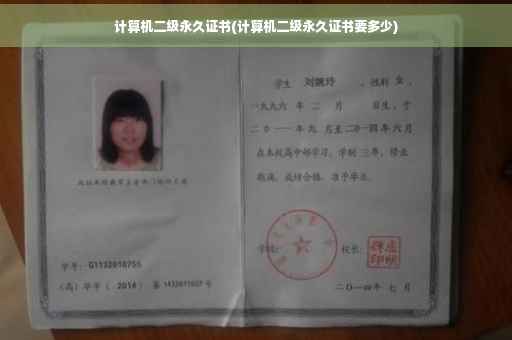 计算机二级永久证书(计算机二级永久证书要多少)
学生 刘婉玲 ，性别 女 ，
一九九六 年 二 月 日生，于
二〇一一年九 月至二〇一四年六月
在本校高中部学习，学制 三年，修业
期满，成绩合格，准予毕业。
学校： 校长：
二〇一四年 七 月
学号： G1132010755
（高）毕字（ 2014 ）第 1432011027 号